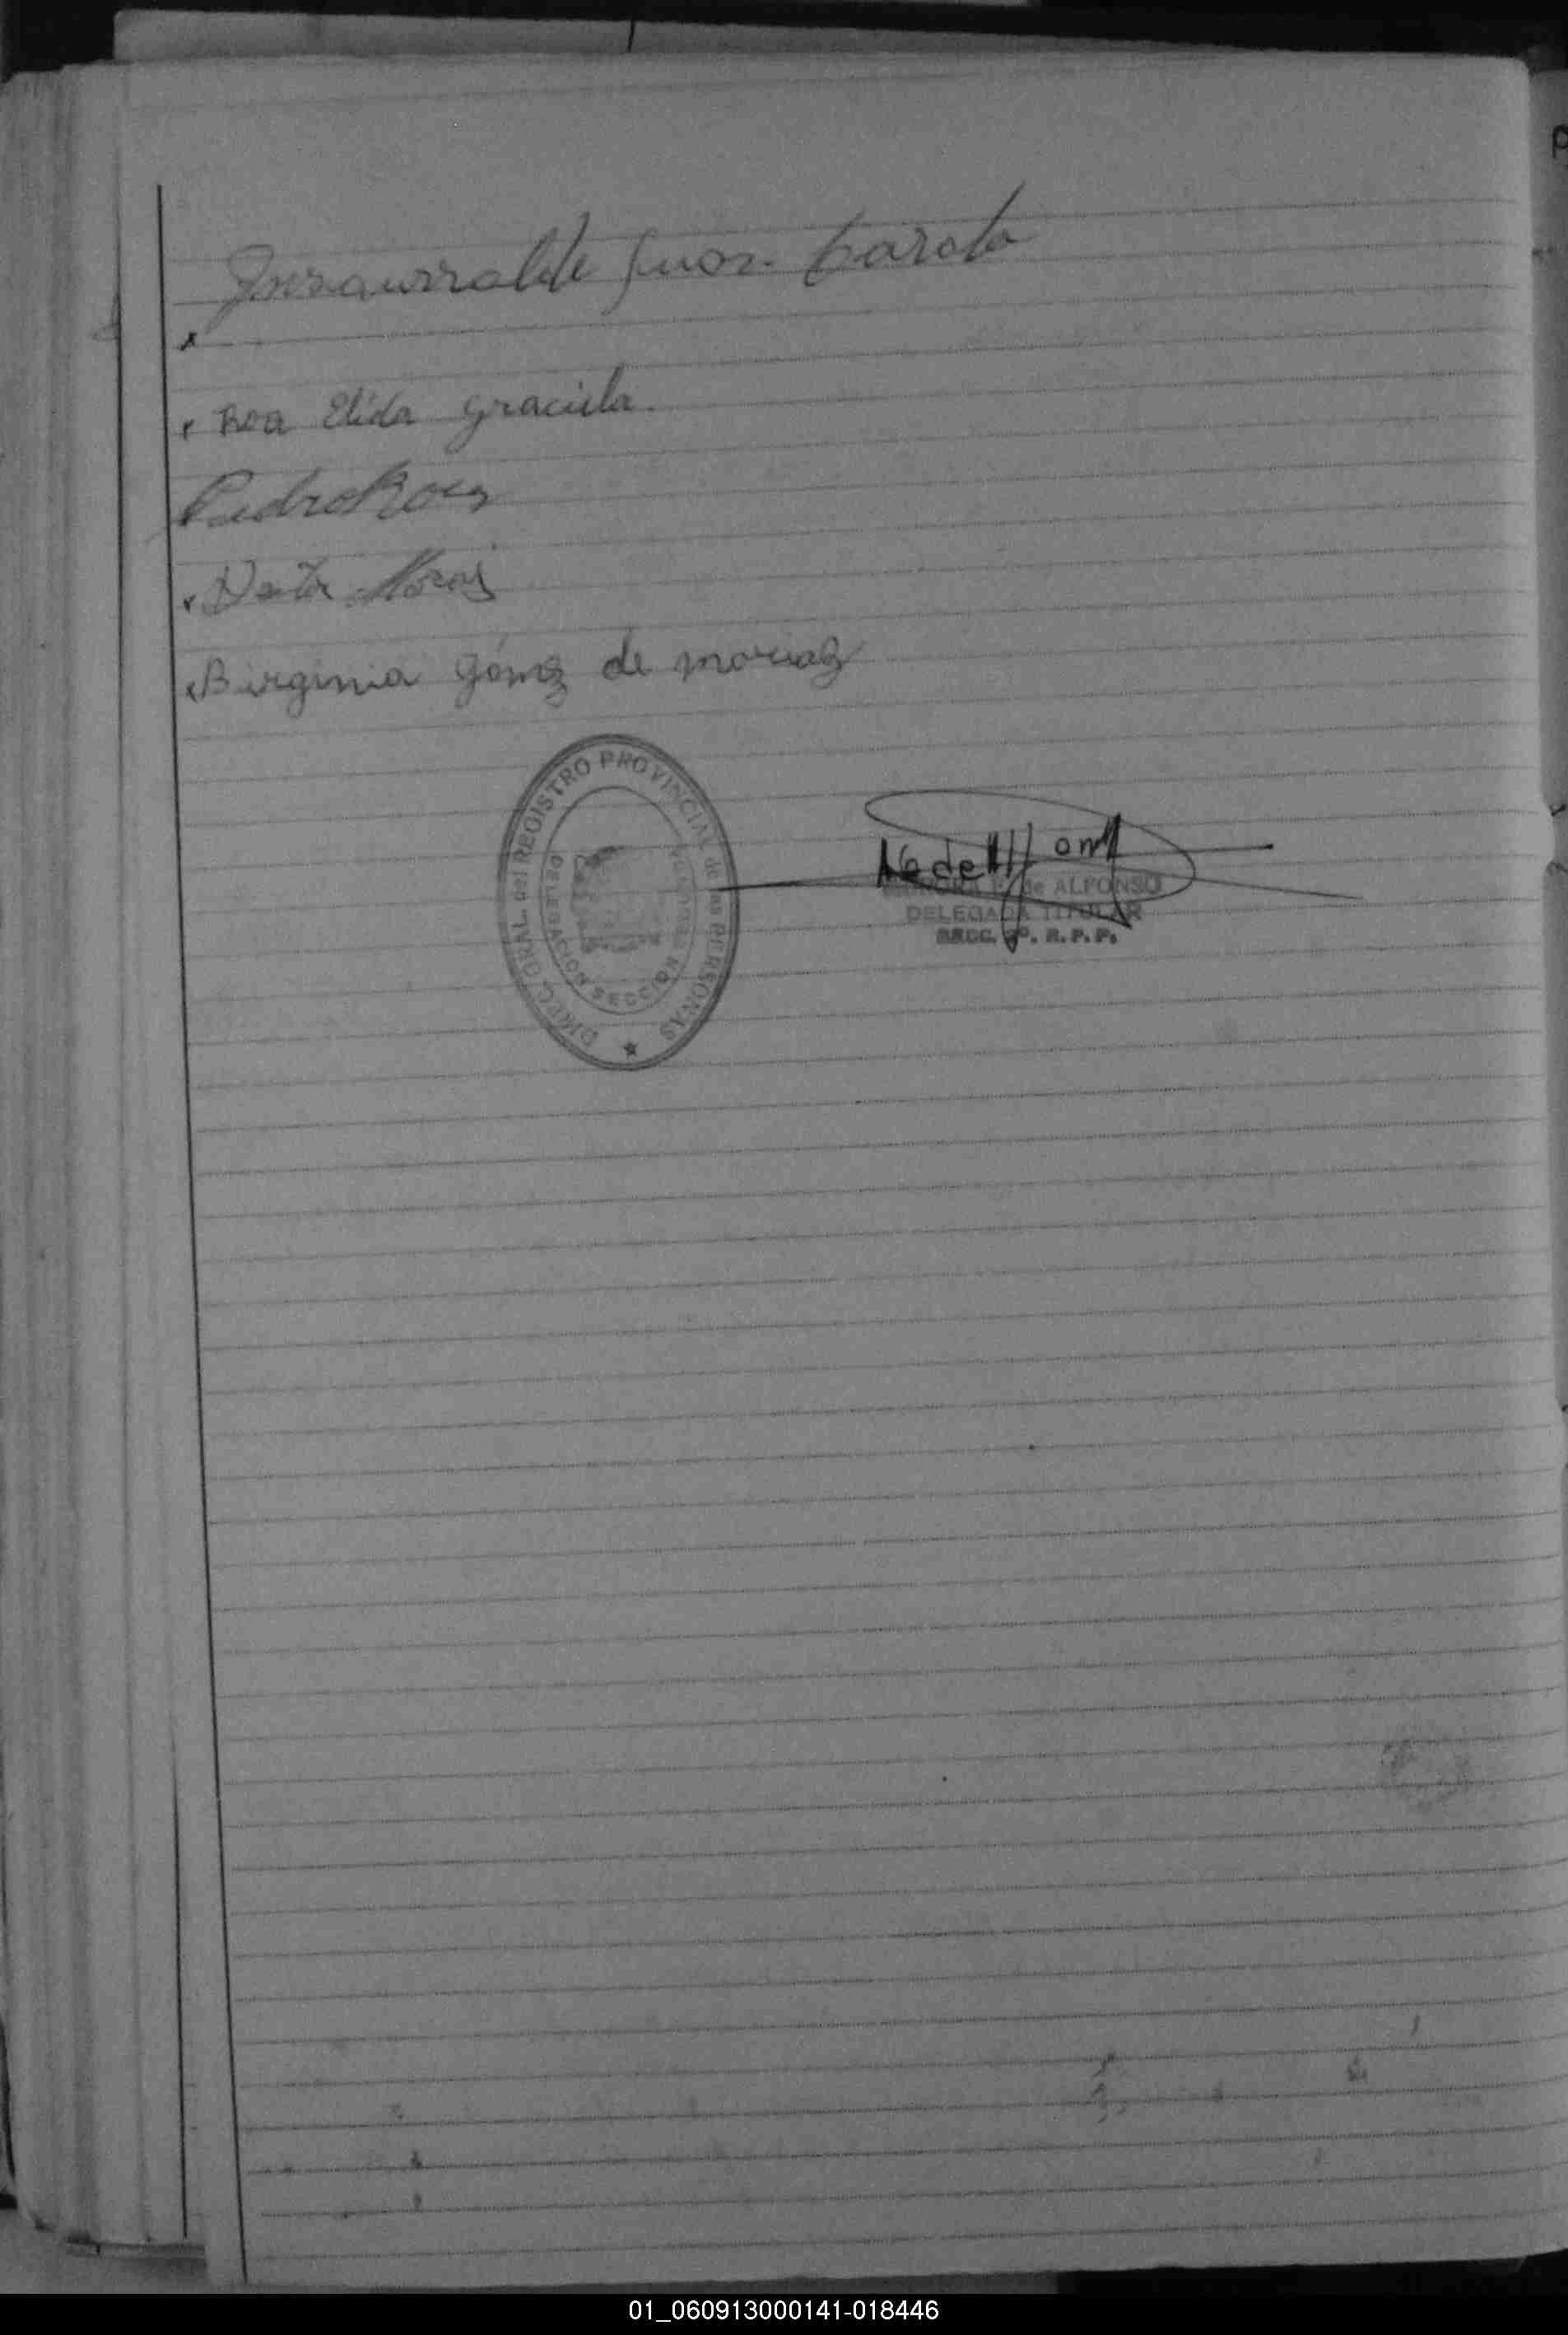 Insaurralde Juan Carlo
x
x Roa Elida Graciela.
Pedro Roa
x
x Birginia Gómez de
DIREC. GRAL. del REGISTRO PROVINCIAL de las PERSONAS
DELEGACION SECCION
de ALFONSO
DELEGADA TITULAR
SECC. R.P.P.
01_060913000141-018446